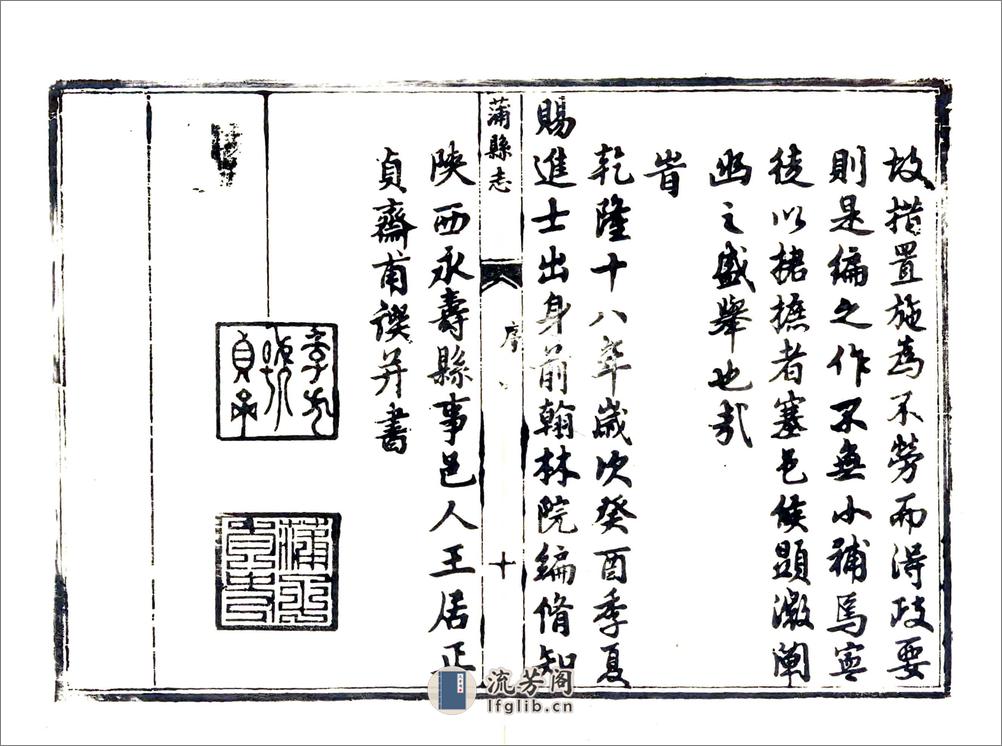 故措置施為不勞而得政要
則是編之作不無小補焉寧
徒以捃摭者塞邑侯顯微闡
幽之盛舉也哉
旹
乾隆十八年歲次癸酉季夏
賜進士出身前翰林院編脩知
蒲縣志
序
十
陝西永壽縣事邑人王居正
貞齋甫譔并書
流芳阁
lfglib.cn